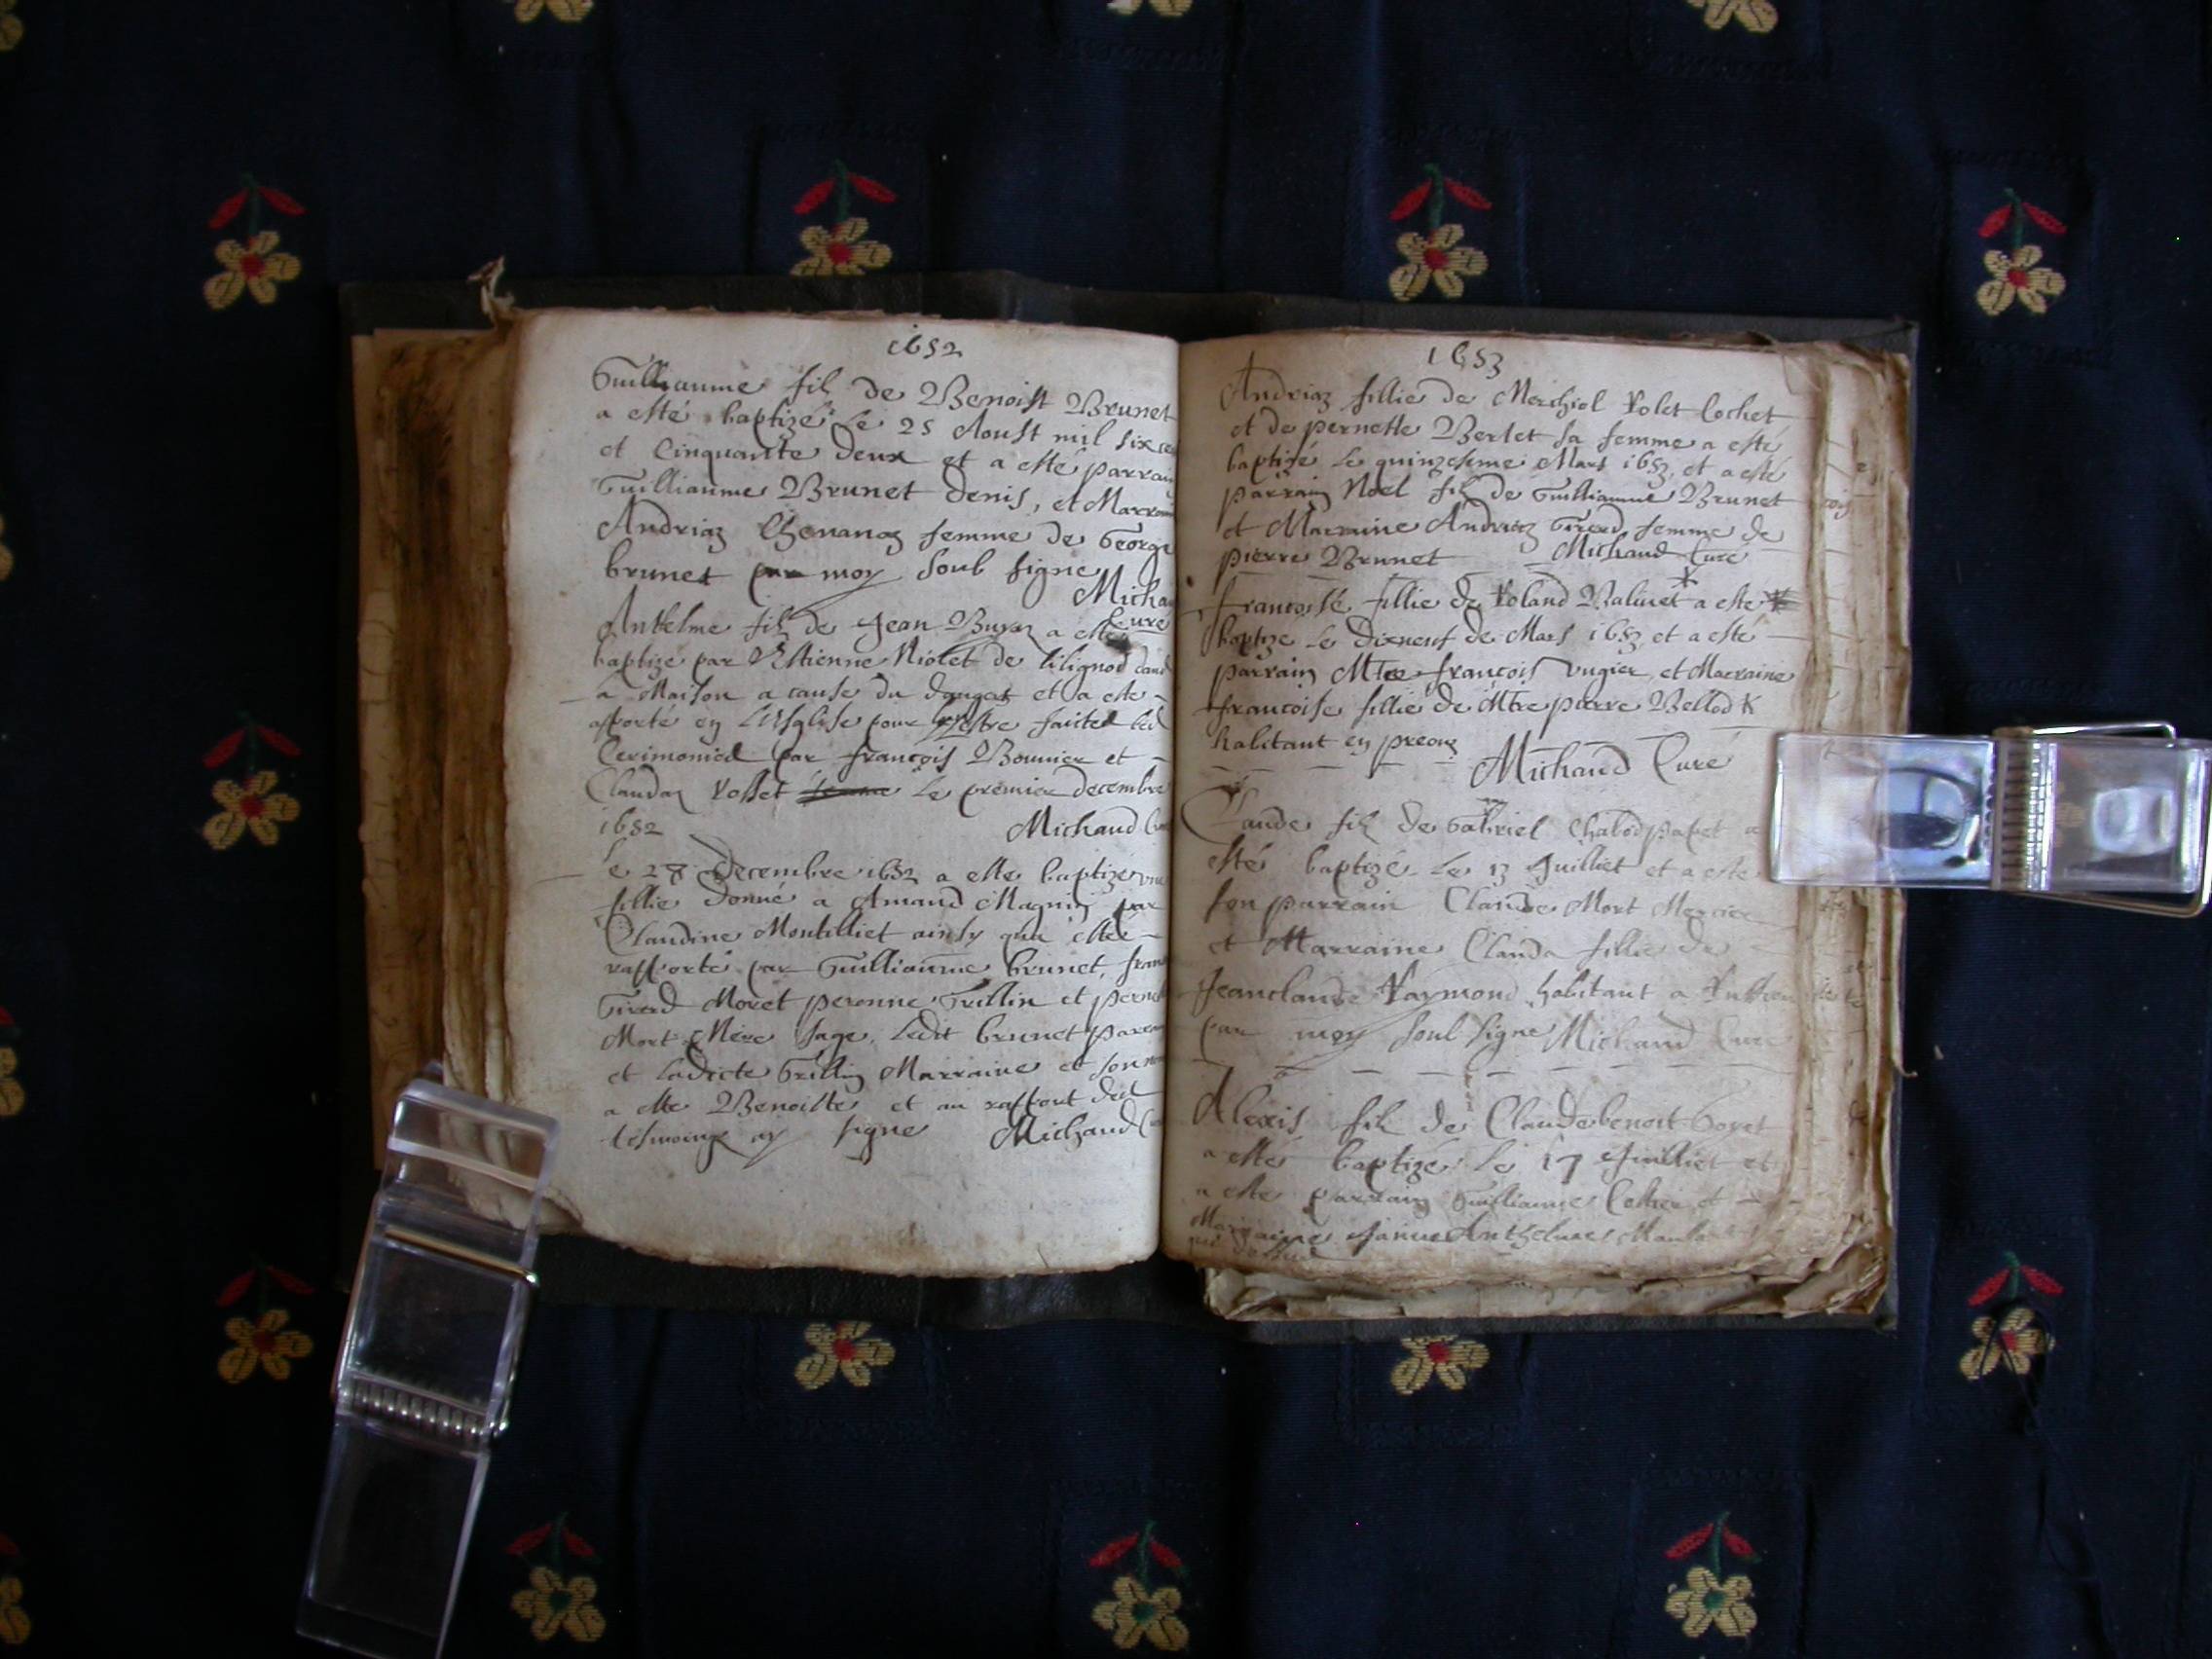 1652
Guilliaume filz de Benoist Brunet
a esté baptizé le 25 Aoust mil six cen
et cinquante deux et a esté parrain
Guilliaume Brunet denis, et Marraine
Andriaz femme de George
brunet par moy soub signe
Michaud
Curé
Antelme filz de Jean a esté
baptize par Estienne Niolet de lilignod dans
la Maison a cause du danger et a este
apporté en L'Esglise pour faites les
Cerimonies par françois Bonnier et
Claudaz Rosset le premier decembre
1652 Michaud
Le 28 Decembre 1652 a este baptizé une
fillie donné a Amand Magnin par
Claudine Montilliet ainsy qua esté
rapporté par Guilliaume brunet, fran
Girerd Moret peronne Grillin et pern
Mort Mere sage, Ledit brunet parrain
et Ladicte Grillin Marraine et son nom
a este Benoiste et au rapport desd
tesmoings ay signe Michaud
1653
Andriaz fillie de Merchiol Rolet Cochet
et de pernette Berlet sa femme a esté
baptizé le quinzesme Mars 1653, et a esté
parrain Noel filz de Guilliaume Brunet
et Marraine Andriaz Girerd femme de
pierre Brunet Michaud Curé
françoise fillie de Roland Balinet a esté
baptize le dixneuf de Mars 1653 et a esté
parrain Mtre françois Vugier et Marraine
françoise fillie de Mtre pierre Bellod
habitant en
Michaud Curé
Claude filz de Gabriel Chabod a
esté baptizé le 13 Juilliet et a este
son parrain Claude Mort Mercier
et Marraine Clauda fillie de
Jeanclaude Raymond habitant a
par moy soub signe Michaud Curé
Alexis filz de Claudebenoit
a esté baptizé le 17 Juilliet et
a este parrain Guilliaume et
Marraine Anthelme